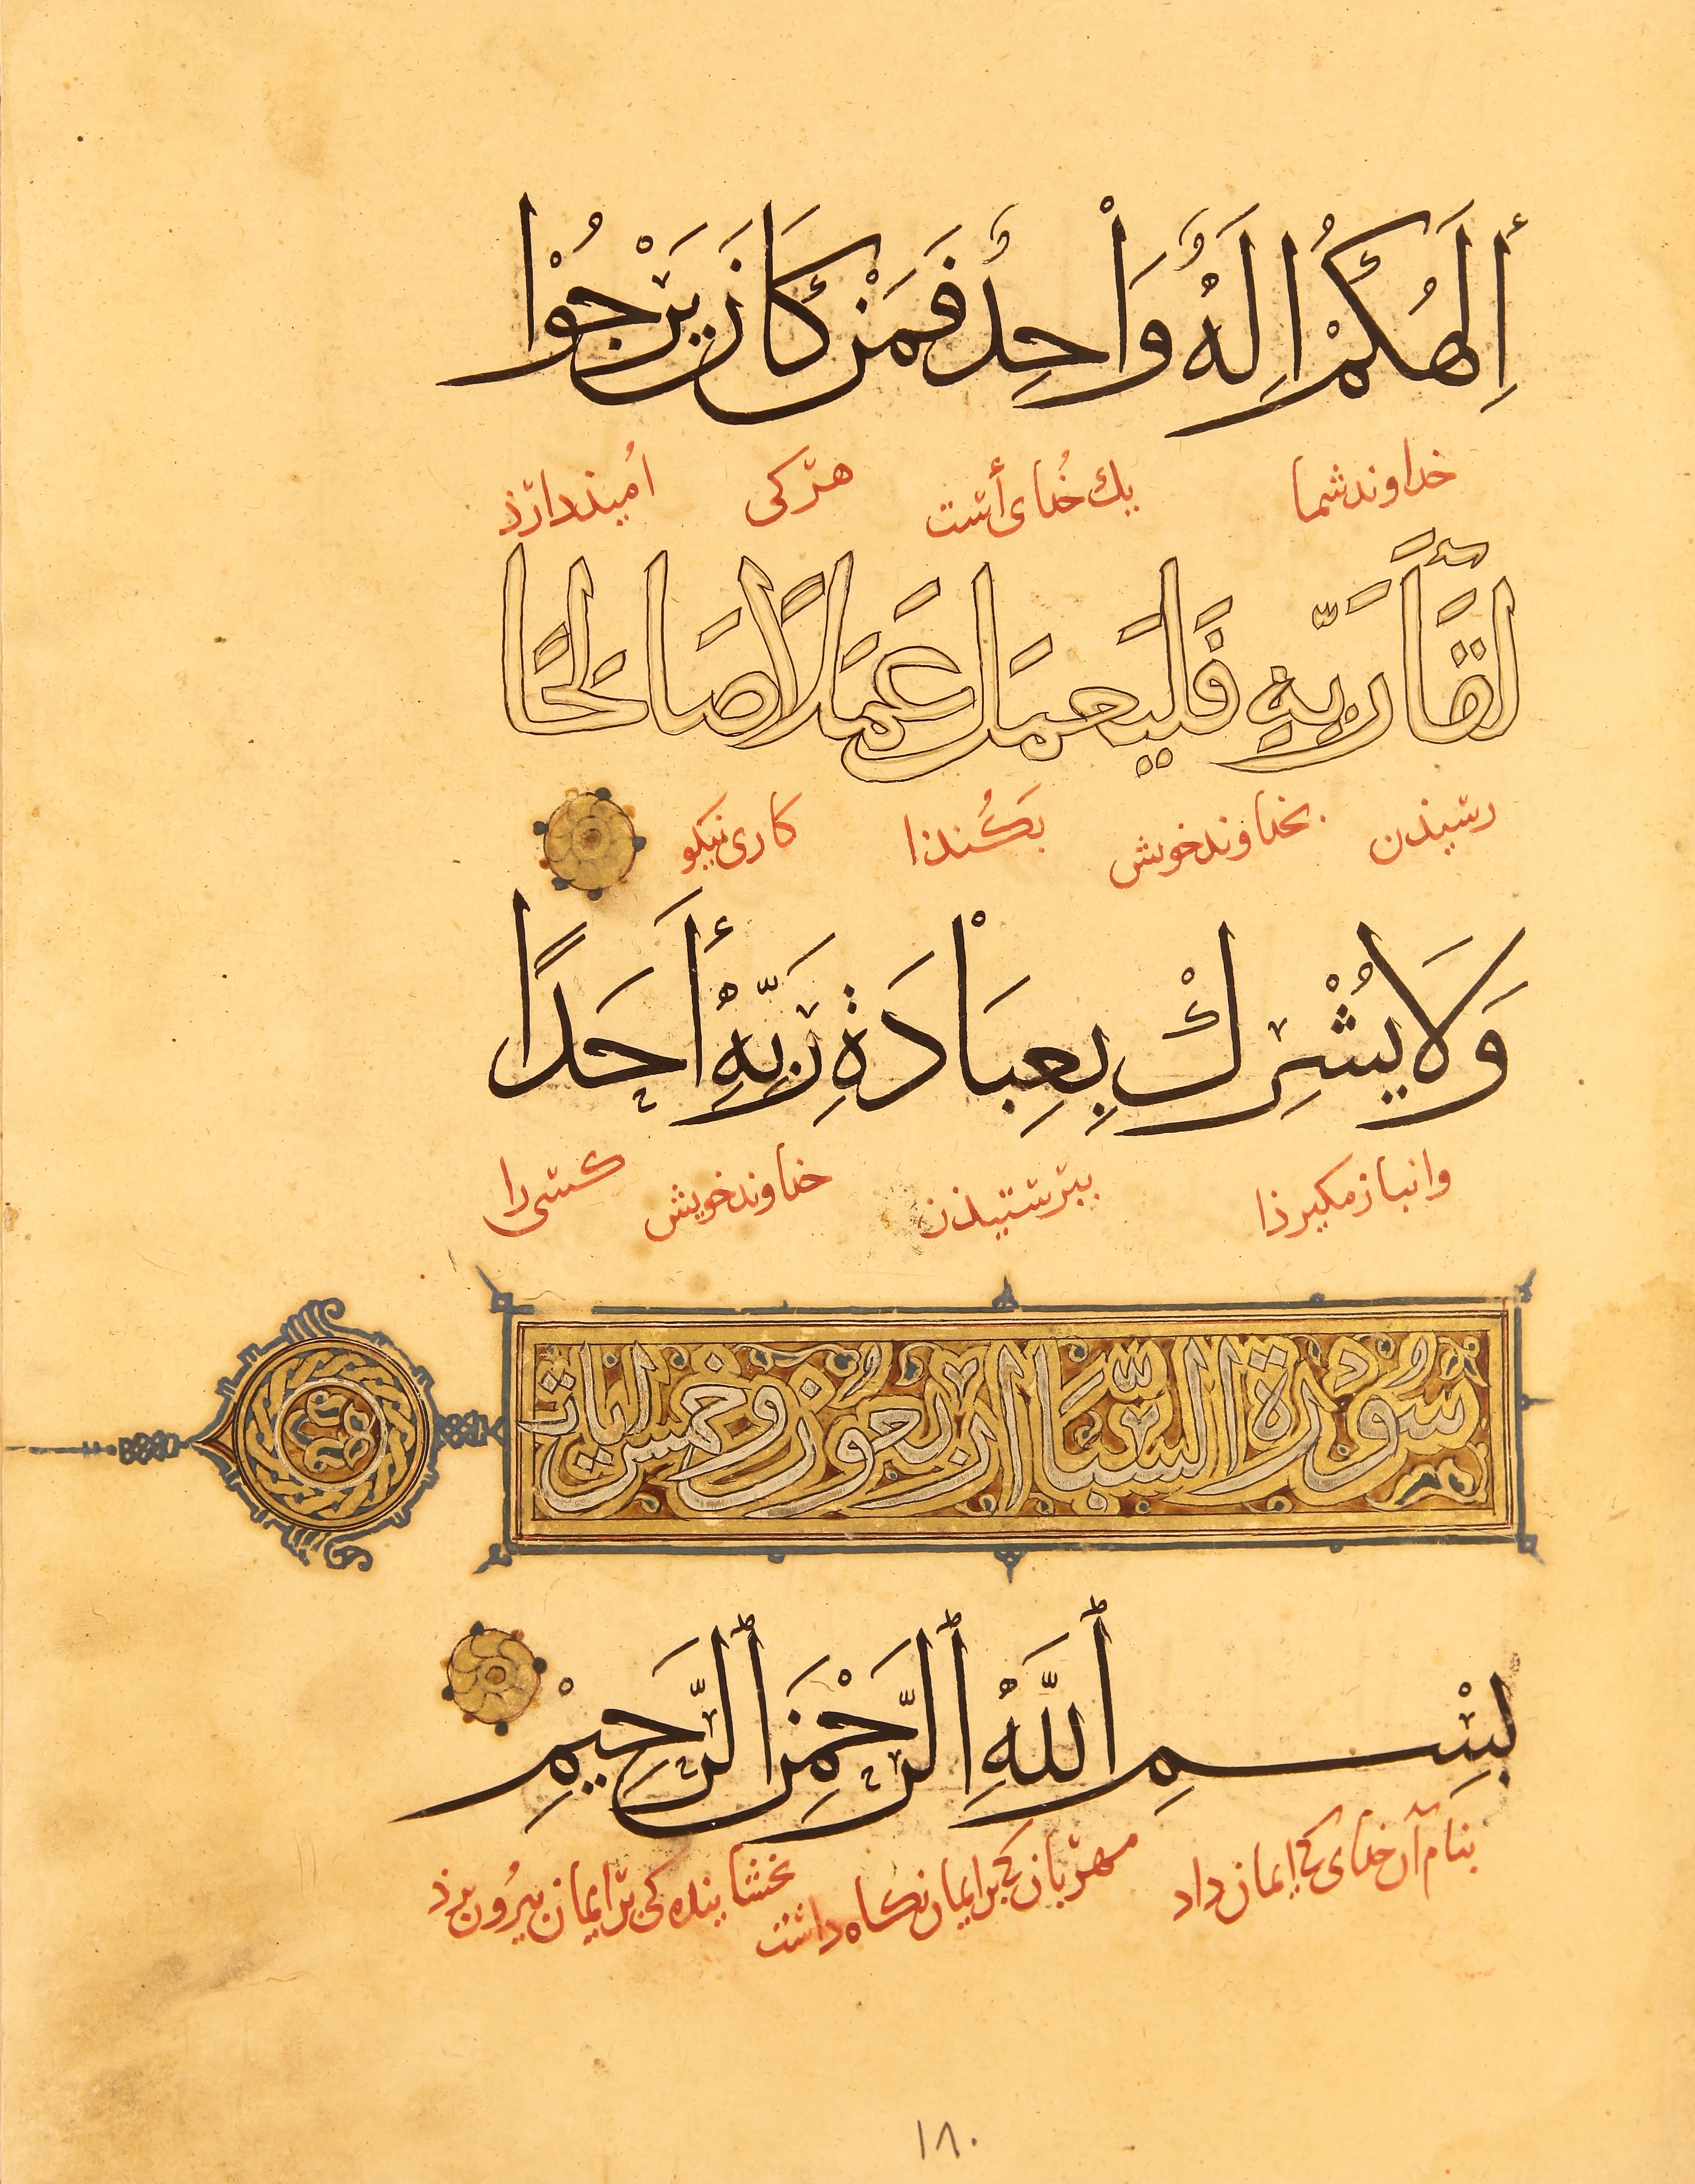 إِلَهُكُمْ إِلَهٌ وَاْحِدٌ فَمَنْ كَانَ يَرْجُوْا
خداوند شما یك خُدای أست هر کی اُمیذ دارذ
لِقَآءَ رَبِّهِ فَلْيَعمَل عَمَلًا صَالِحًا
رسیذن بخداوند خویش بکُنذا کاری نیکو
وَلَا يُشْرِكْ بِعِبَاْدَةِ رَبِّهِ أَحَدًا
وانباز مکیرذا ببرستیذن خداوند خویش کسی را
سُورَة السَّبَأ اربعون وخمس ايات
بِسْمِ اللَّهِ الرَّحْمَنِ الرَّحِيْمِ
بنام آن خدای کی ایمان داد مهربان کی بر ایمان نکاه داشت بخشاینده کی بر ایمان بیرُون برذ
١٨٠